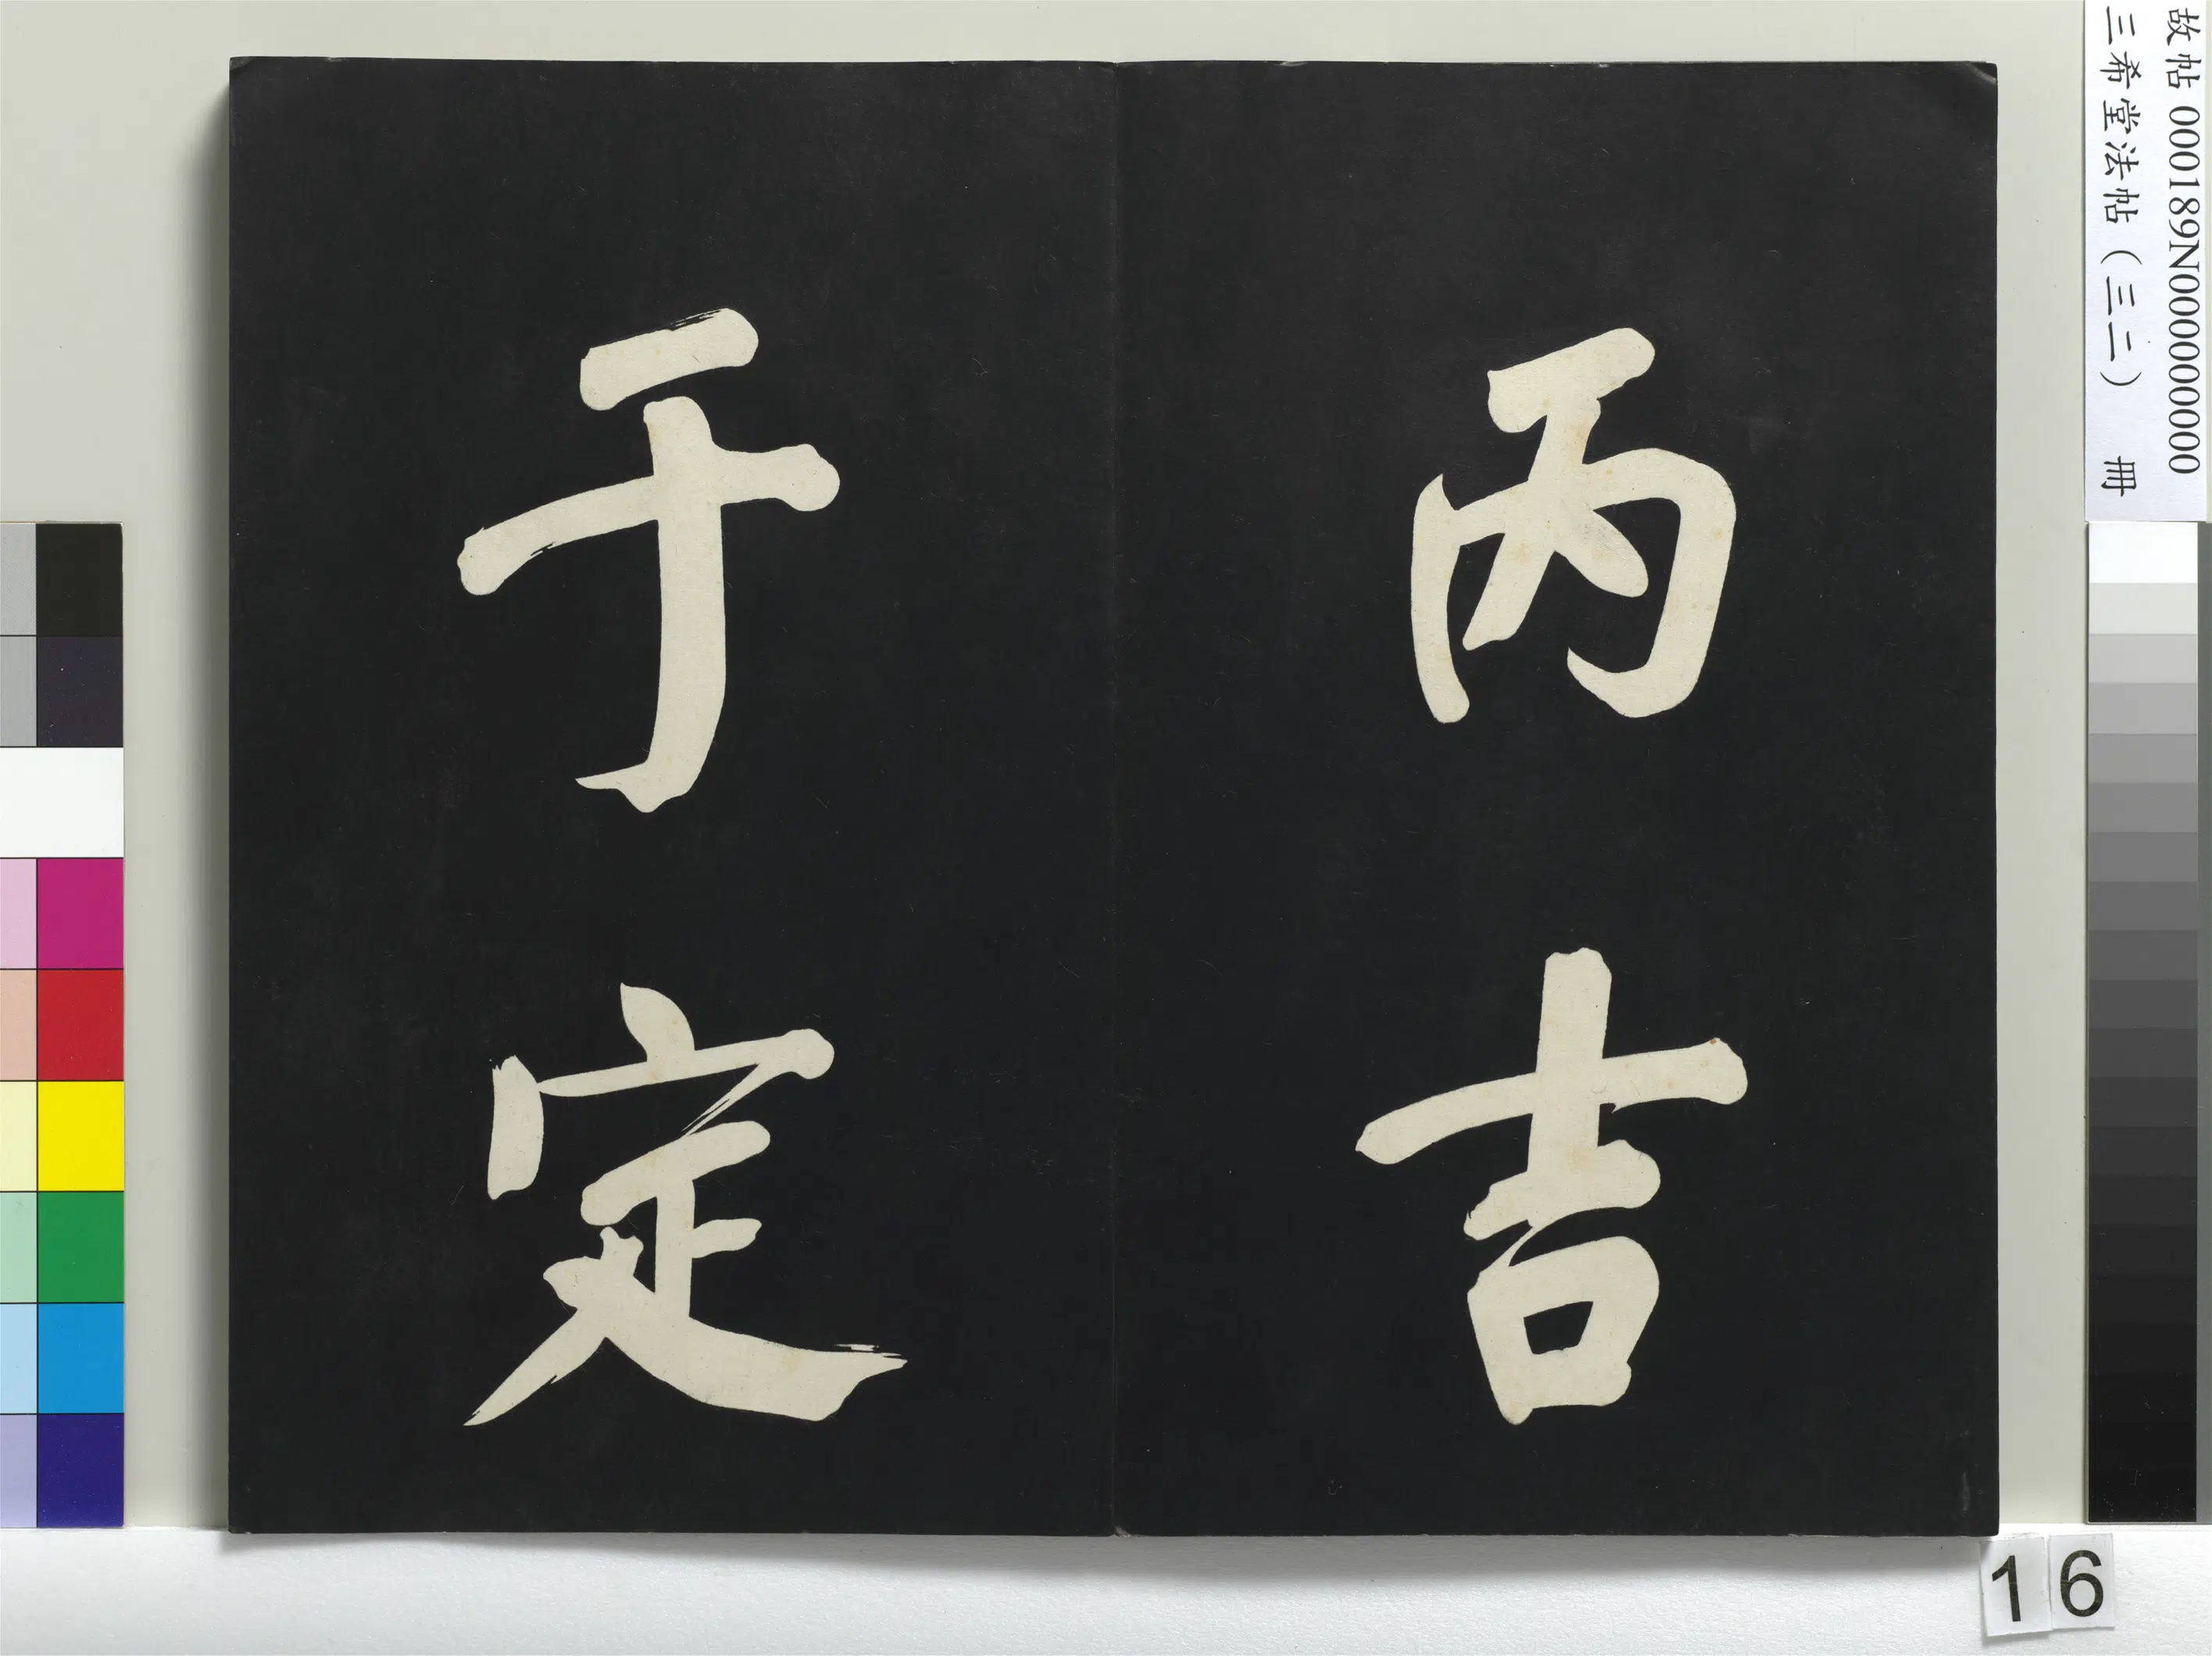 故帖 000189N000000000
三希堂法帖（三二） 冊
丙吉
于定
16